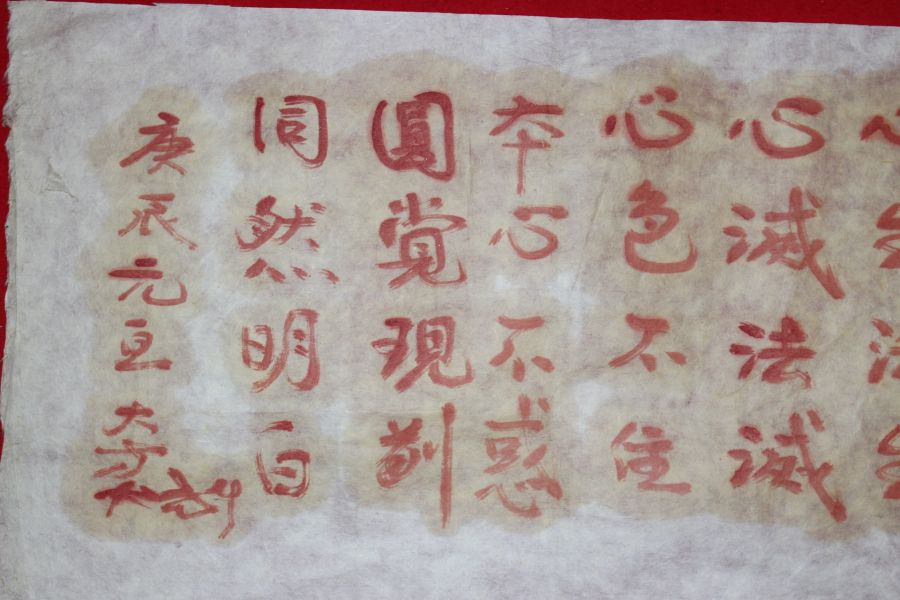 心滅法滅
心色不住
夲心不惑
圓覚現前
同然明白
庚辰元旦